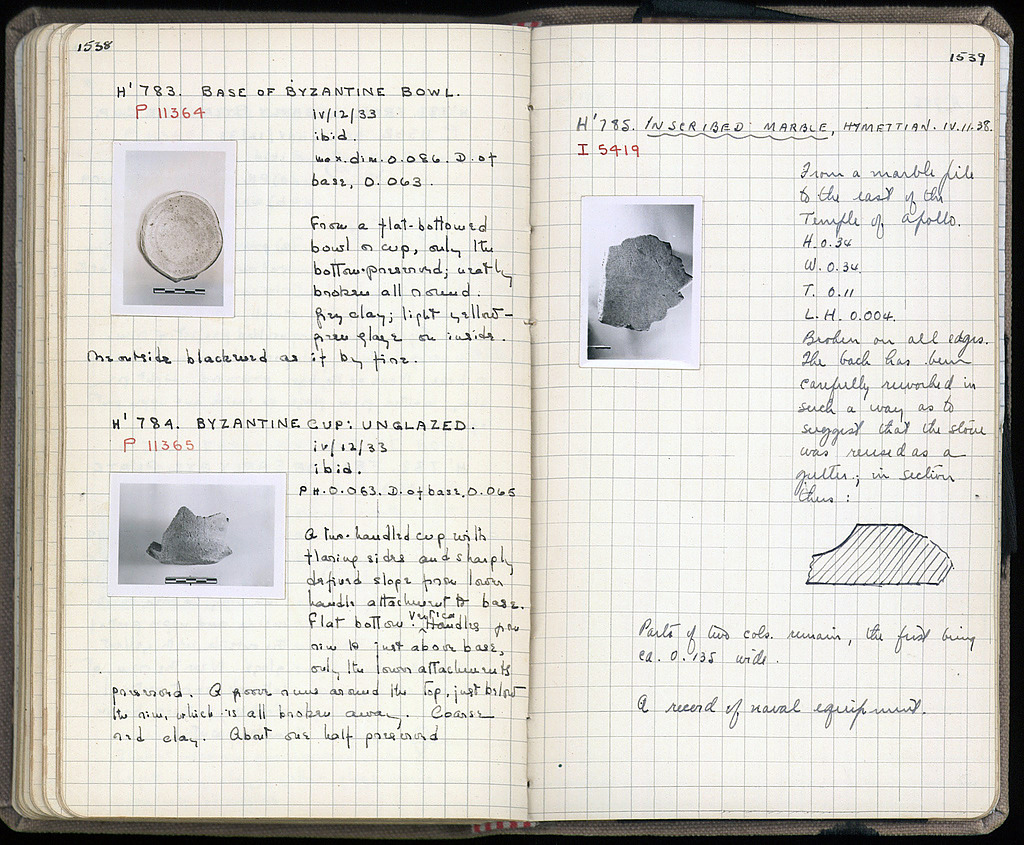 1538
H' 783. BASE OF BYZANTINE BOWL.
P 11364
iv/12/33
ibid.
max. dim. 0.086. D. of
base, 0.063.
From a flat-bottomed
bowl or cup, only the
bottom preserved; neatly
broken all round.
Grey clay; light yellow-
green glaze on inside.
The outside blackened as if by fire.
H' 784. BYZANTINE CUP: UNGLAZED.
P 11365
iv/12/33
ibid.
PH. 0.063. D. of base, 0.065
A two-handled cup with
flaring sides and sharply
defined slope from lower
handle attachment to base.
Flat bottom. Vertical Handles from
rim to just above base,
only the lower attachments
preserved. A groove runs around the top, just below
the rim, which is all broken away. Coarse
red clay. About one half preserved
1539
H' 785. INSCRIBED MARBLE, HYMETTIAN. IV.11.38.
I 5419
From a marble pile
to the east of the
Temple of Apollo.
H. 0.34
W. 0.34.
T. 0.11
L.H. 0.004.
Broken on all edges.
The back has been
carefully reworked in
such a way as to
suggest that the stone
was reused as a
gutter; in section
thus:
Parts of two cols. remain, the first being
ca. 0.135 wide.
A record of naval equipment.